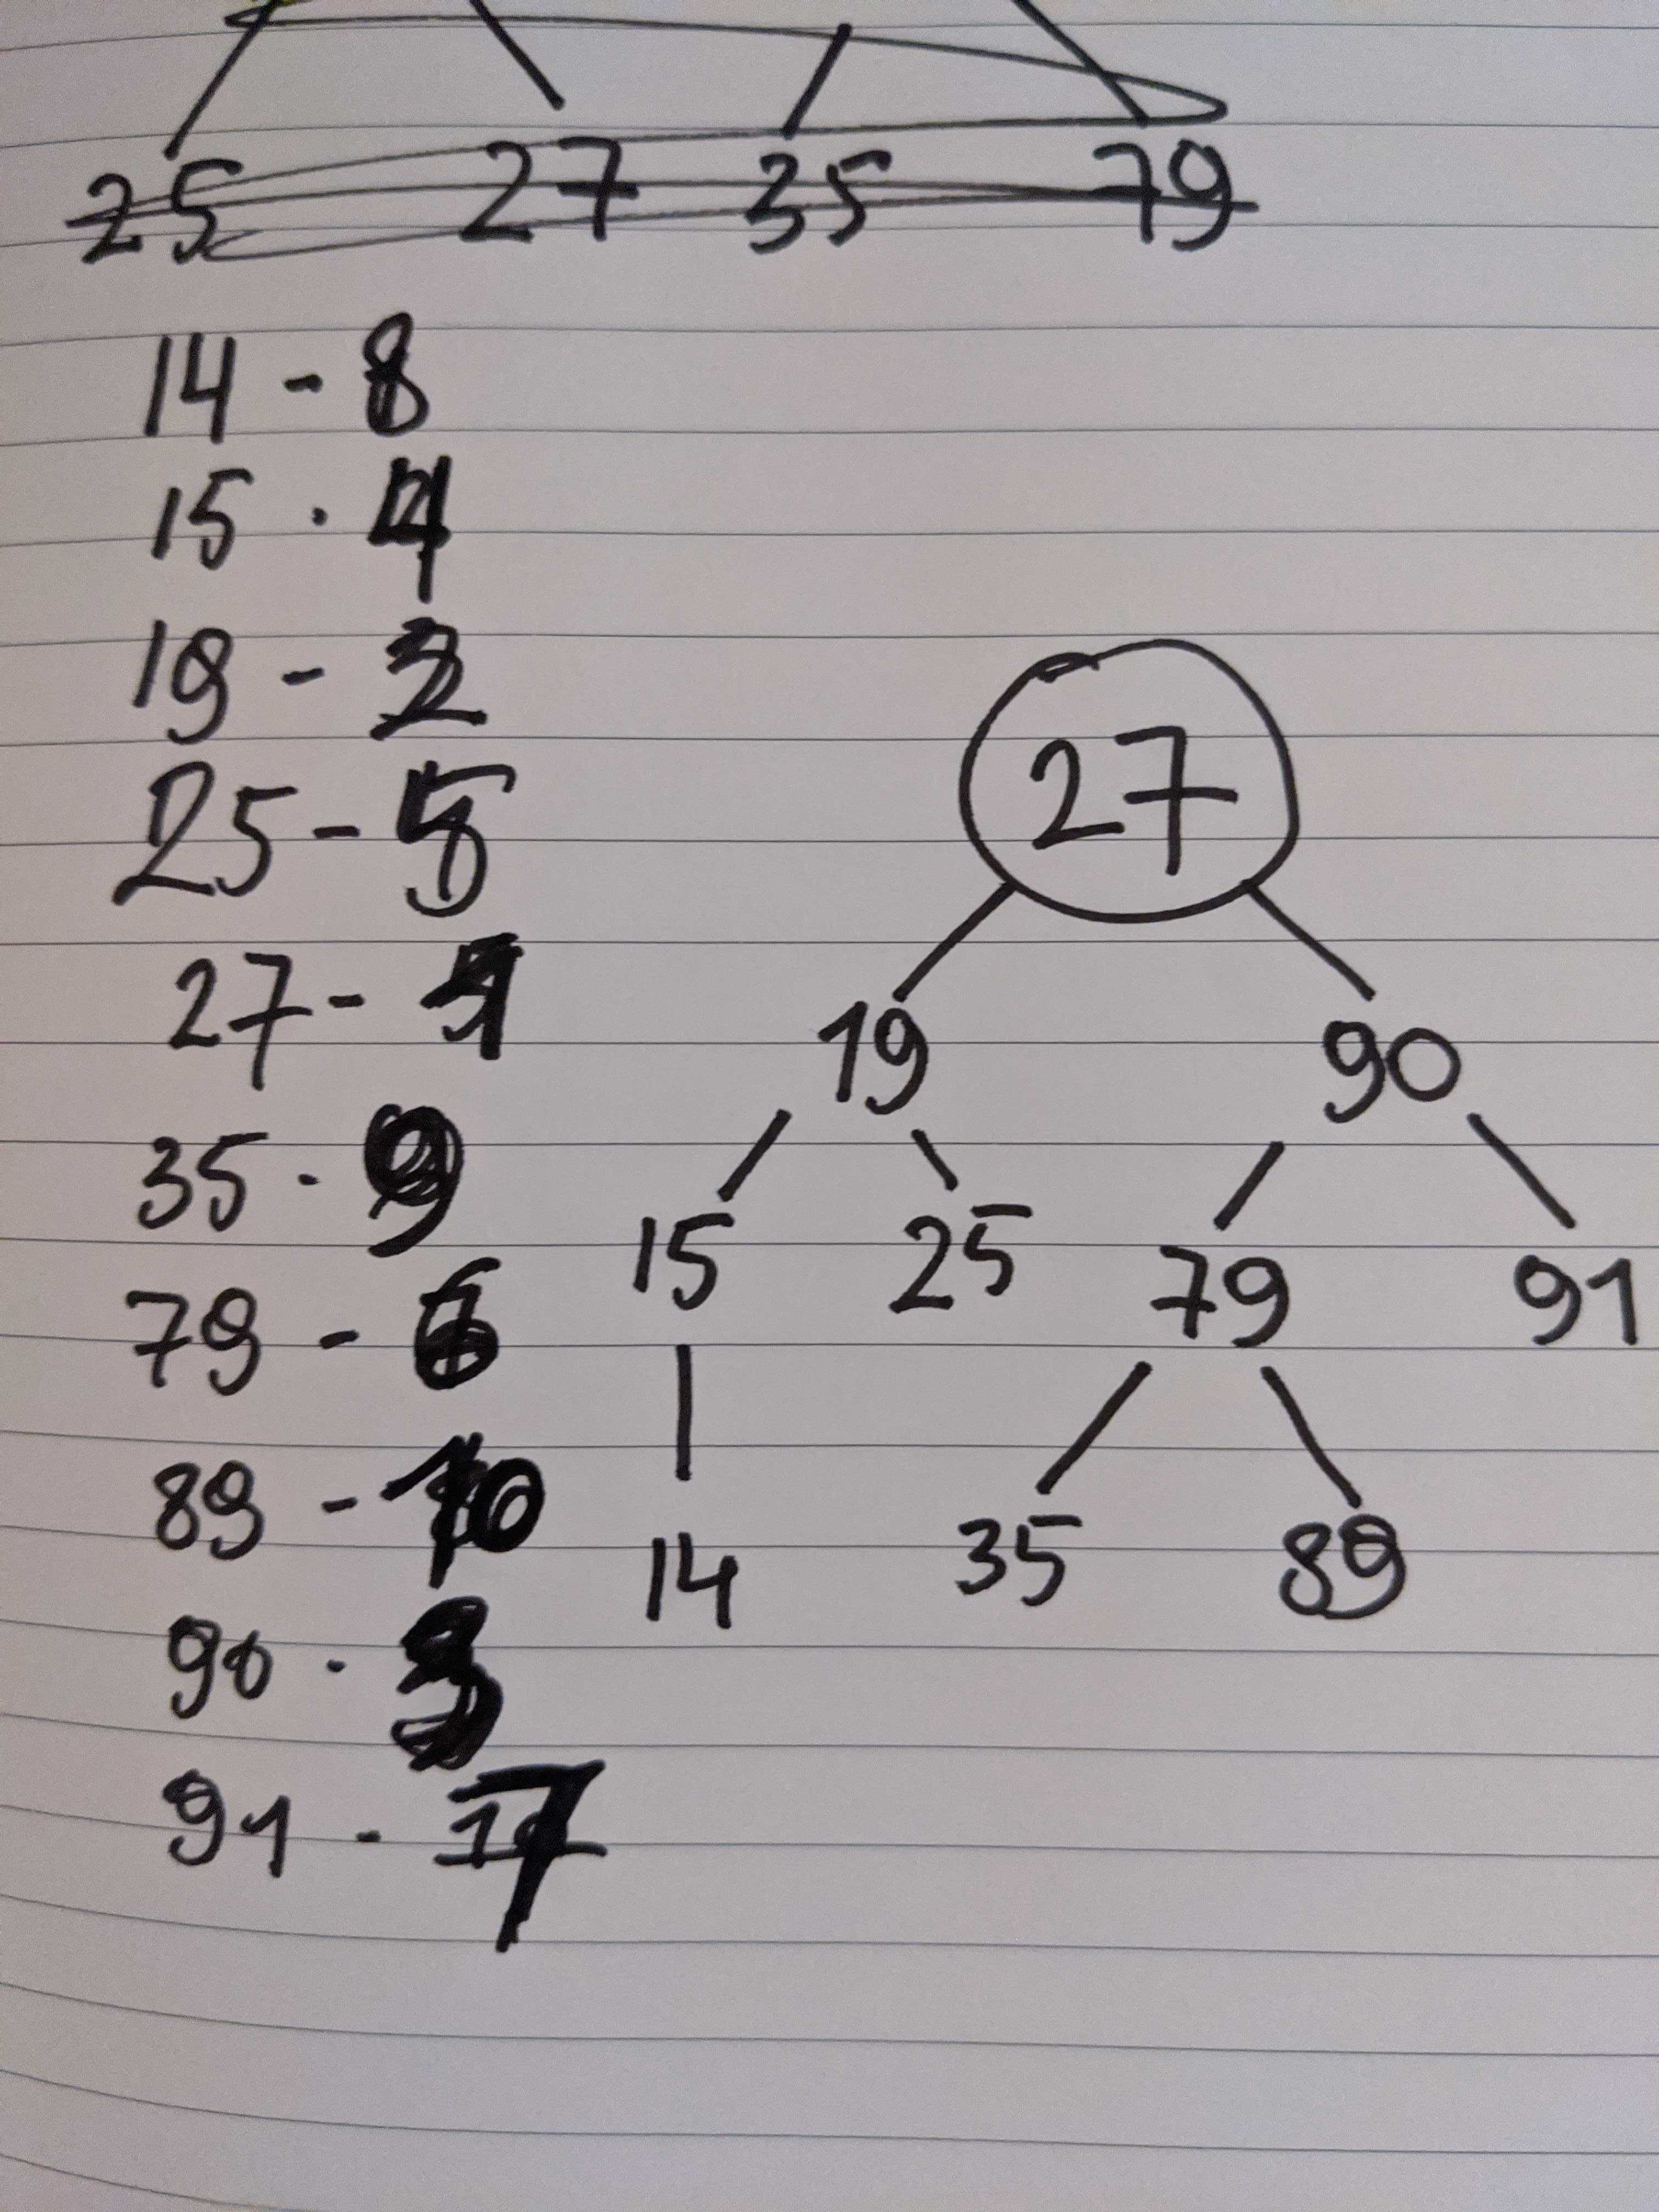 25 27 35 79
14 - 8
15 - 4
19 - 2
25 - 5
27 - 1
35 - 9
79 - 6
89 - 10
90 - 3
91 - 7
27
19 90
15 25 79 91
14 35 89